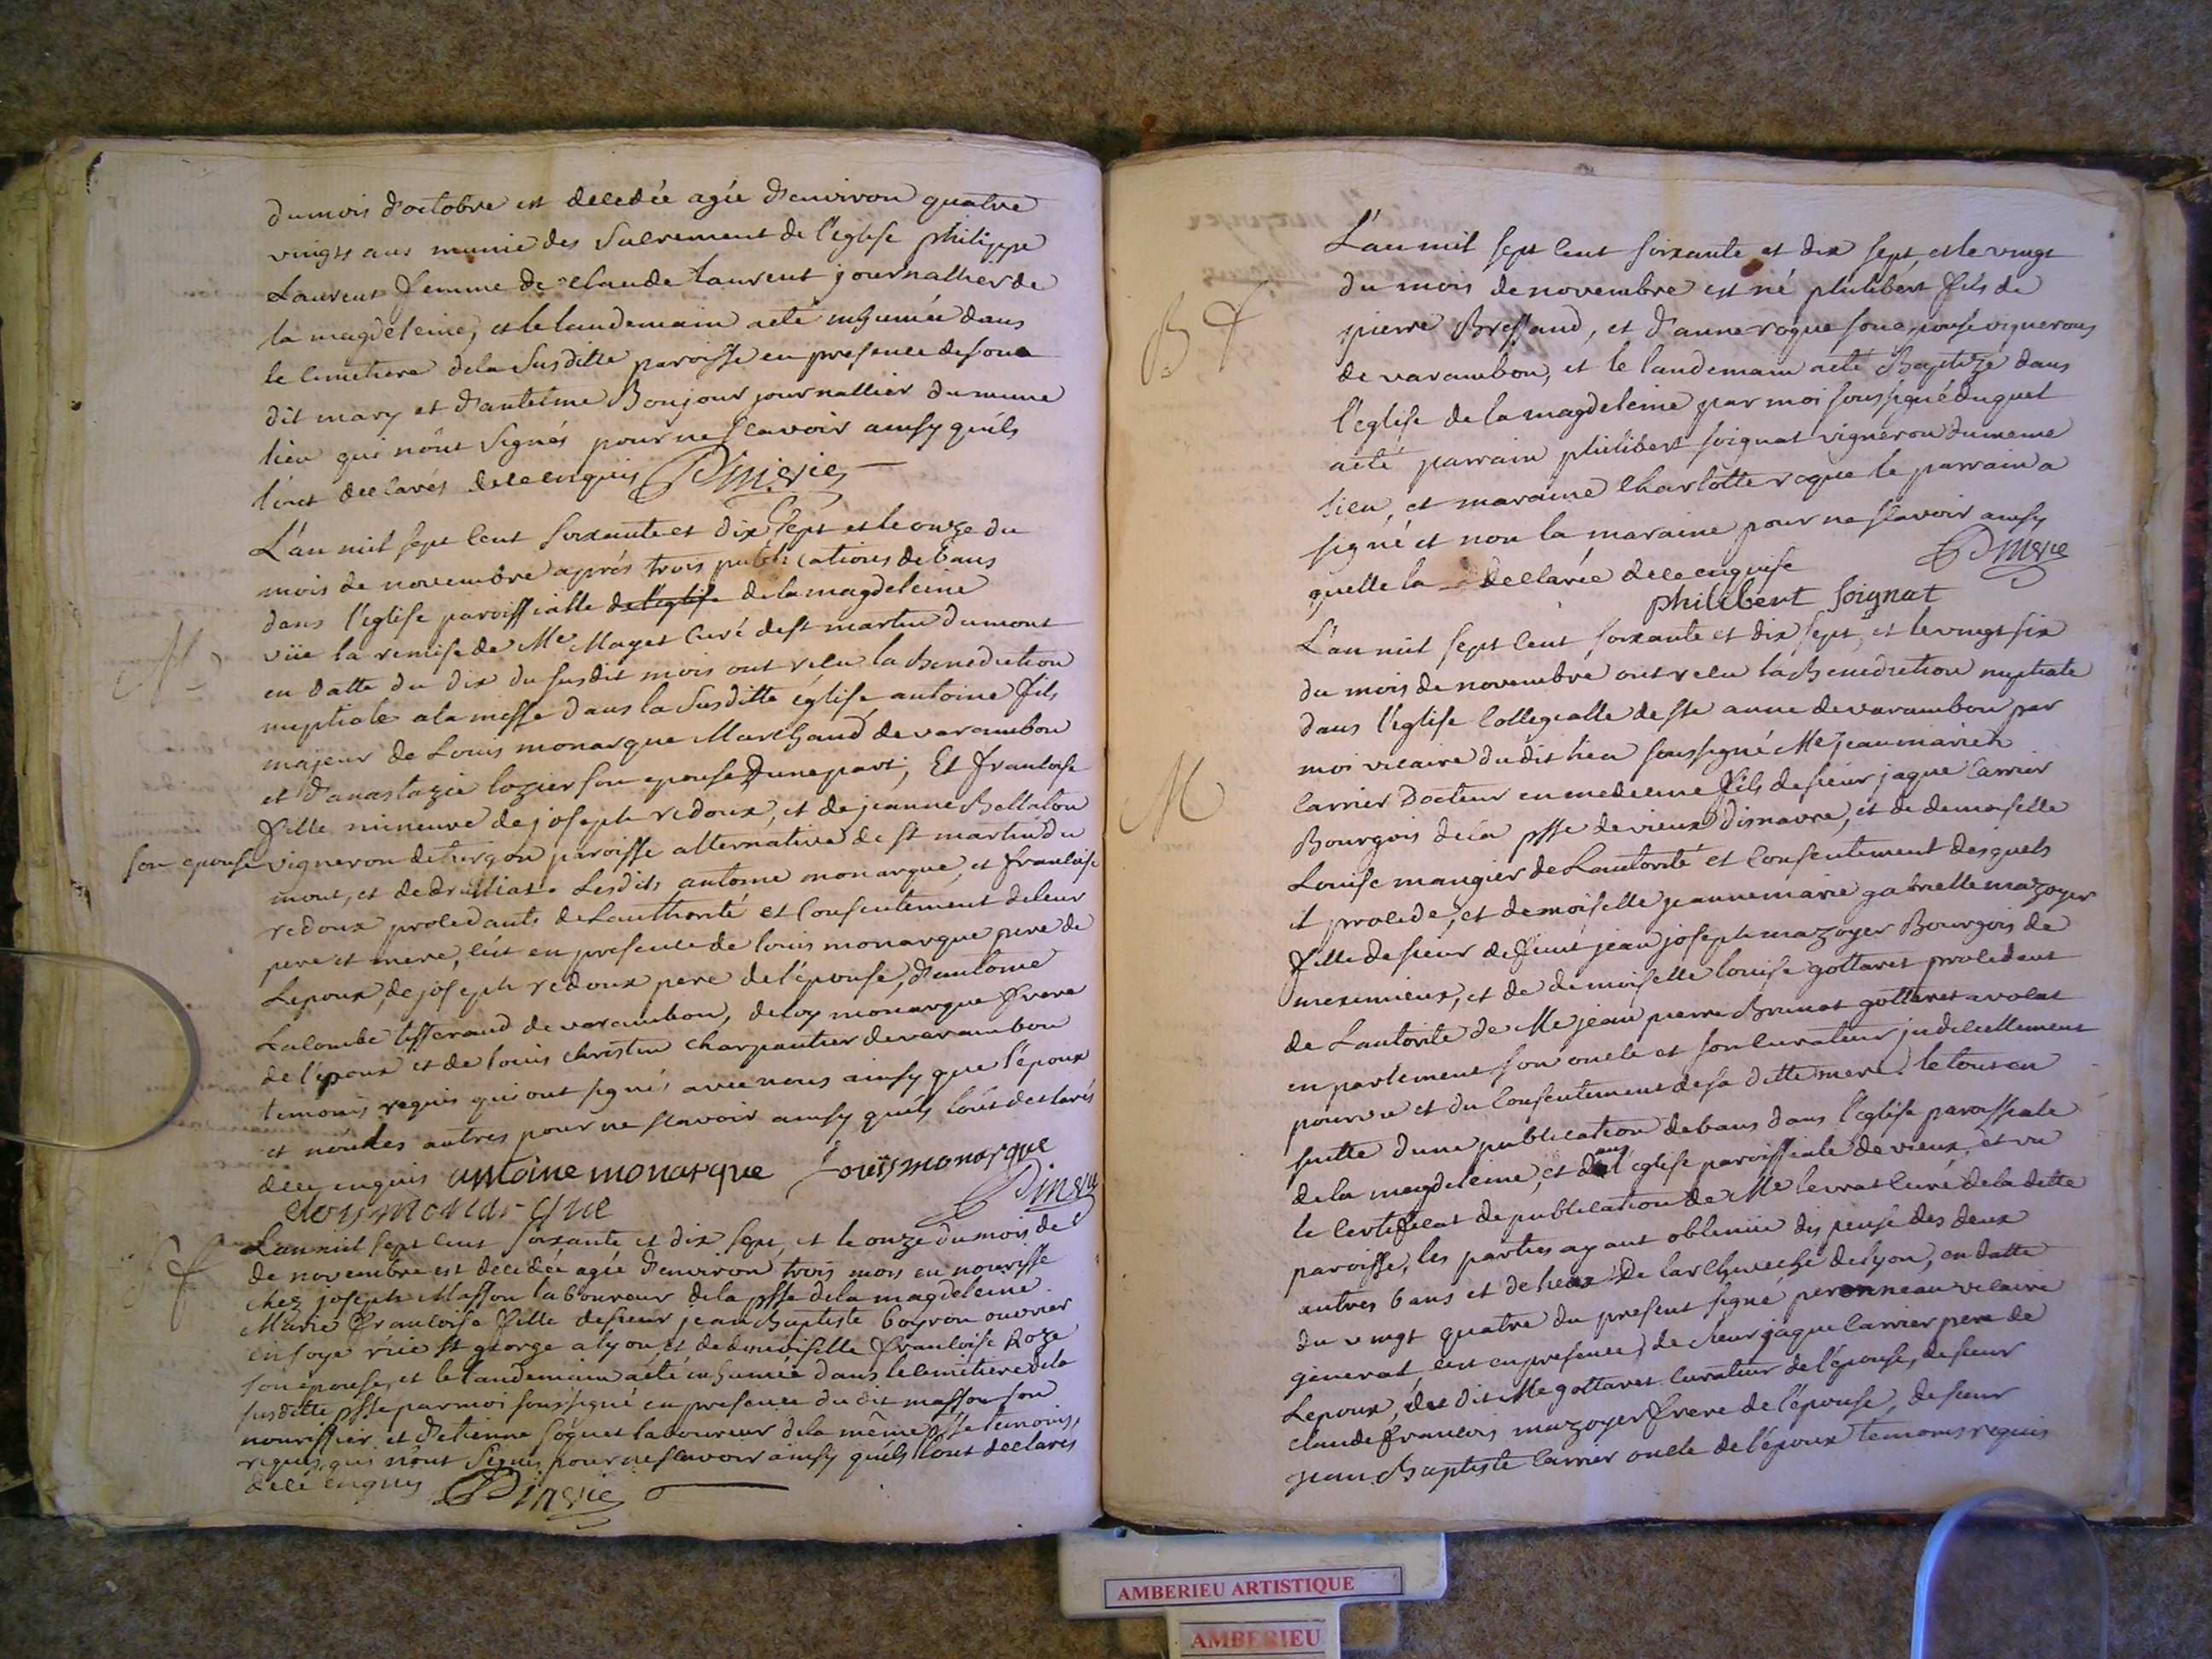 du mois d'octobre est decedée agée d'environ quatre
vingts ans munie des Sacrement de l'eglise philippe
Laurent femme de claude Laurent journallier de
la magdeleine, et le landemain a eté inhumée dans
le cimetiere de la Susditte paroisse en presence de son
dit mary et d'antelme Bonjour journallier du meme
lieu qui n'ônt Signés pour ne sçavoir ainsy qu'ils
l'ont declarés de ce enquis
L'an mil sept cent soixante et dix sept et le onze du
mois de novembre aprés trois publications de bans
dans l'église paroissialle de l'eglise de la magdeleine
vüe la remise de Me Maget curé de st martin du mont
en datte du dix du susdit mois ont recu la Benediction
M
nuptiale a la messe dans la Susditte église antoine fils
majeur de Louis monarque Marchand de varambon
et d'anastazie lozier son epouse d'une part, Et francoise
fille mineure de joseph redoux, et de jeanne Bellaton
son epouse vigneron de turgon paroisse alternative de st martin du
mont, et de druilliat. Lesdits antoine monarque, et francoise
redoux procedants de l'authorité et consentement de leur
pere et mere, c'est en presence de louis monarque pere de
L'epoux, de joseph redoux pere de l'épouse, d'antoine
Lacombe tisserand de varambon, d'eloy monarque frere
de l'époux et de louis christin charpantier de varambon
temoins requis qui ont signés avec nous ainsy que l'époux
et non les autres pour ne scavoir ainsy qu'ils l'ont declarés
de ce enquis antoine monarque Louïs monarque
eloy monar-que
L'an mil sept cent soixante et dix sept, et le onze du mois de
de novembre est decedée agée d'environ trois mois en nourisse
chez joseph Masson laboureur de la psse de la magdeleine
Marie francoise fille de sieur jean Baptiste boyron ouvrier
en soye rüe st george a lyon, et de demoiselle francoise Roze
son epouse, et le landemain a eté inhumée dans le cimetiere de la
susditte psse par moi soussigné en presence du dit masson son
nourissier et d'etienne soquet laboureur de la même psse temoins
requis, qui n'ont Signés pour ne scavoir ainsy qu'ils l'ont declarés
de ce enquis
L'an mil sept cent soixante et dix sept, et le vingt
du mois de novembre est né philibert fils de
B
pierre Bressand, et d'anne roque son epouse vignerons
de varambon, et le landemain a eté Baptizé dans
l'église de la magdeleine par moi soussigné duquel
a eté parrain philibert soignat vigneron du meme
lieu, et maraine charlotte roque le parrain a
signé et non la maraine pour ne scavoir ainsy
quelle la declarée de ce enquise
philibert soignat
L'an mil sept cent soixante et dix sept, et le vingt six
du mois de novembre ont recu la Benediction nuptiale
dans l'église collegialle de ste anne de varambon par
M
moi vicaire du dit lieu soussigné Me jean marich
carrier Docteur en medecine fils de sieur jaque carrier
Bourgois de la psse de vieux d'isnavre, et de demoiselle
Louise maugier de L'autorité et consentement desquels
il procede, et demoiselle jeanne marie gabrielle mazoyer
fille de sieur defunt jean joseph mazoyer Bourgois de
meximieux, et de demoiselle louise gottaret procedant
de L'autorité de Me jean pierre Brunot gottaret avocat
en parlement son oncle et son curateur judiciellement
pourvu et du consentement de sa ditte mere. le tout en
suitte d'une publication de bans dans l'église paroissiale
de la magdeleine, et dans l'église paroissiale de vieux, et vu
le certificat de publication de Me levrat curé de la ditte
paroisse, les parties ayant obtenüe dispense des deux
autres bans et de lieux de l'archeveché de lyon, en datte
du vingt quatre du present signé peronneau vicaire
general, c'est en presence de sieur jaque carrier pere de
L'epoux, du dit Me gottaret curateur de l'épouse, de sieur
claude francois mazoyer frere de l'épouse, de sieur
jean Baptiste carrier oncle de l'époux temoins requis
AMBERIEU ARTISTIQUE
AMBERIEU